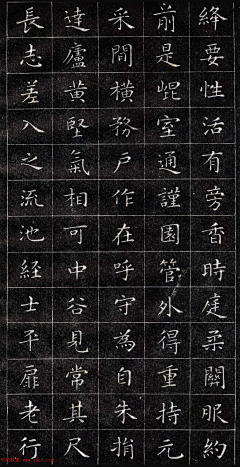 絳要性活有旁香時庭柔關服約
前是崐室通謹園管外得重持元
采間橫務戶作在呼守為自朱揹
達廬黄堅氣相可中谷見常其尺
長志差入之流池経士平扉老行